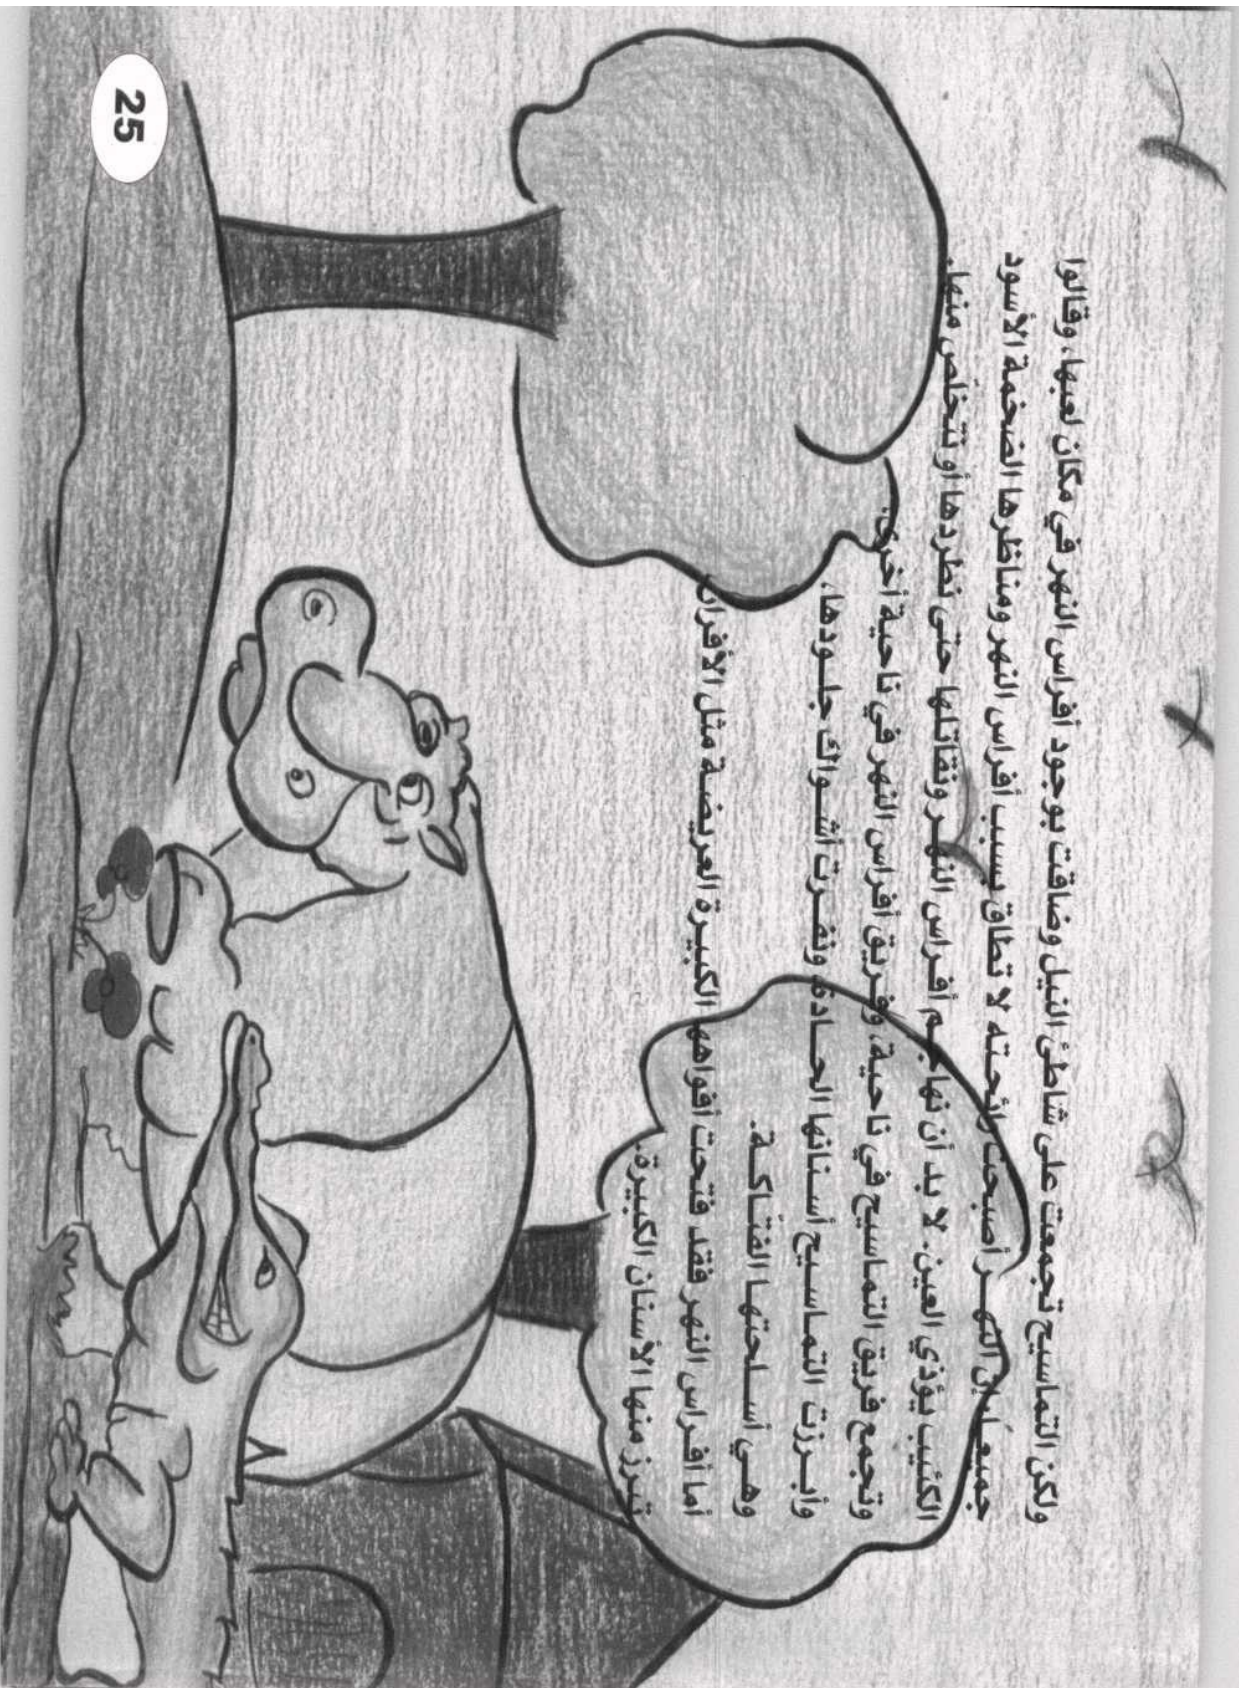 ولكن التماسيح تجمعت على شاطئ النيل وضاقت بوجود أفراس النهر في مكان لعبها، وقالوا
جميعاً إن النهــر أصبحت رائحته لا تطاق بسبب أفراس النهر ومناظرها الضخمة الأسود
الكئيب يؤذي العين. لا بد أن نهاجــم أفــراس النهــر ونقاتلها حتى نطردها أو نتخلّص منها.
وتجمع فريق التماسيح في ناحية، وفــريق أفراس النهر في ناحية أخرى،
وأبــرزت التمــاســيح أســنانها الحــادة، ونفــرت أشــواك جلــودها،
وهــي أســلحتهــا الفتّــاكــة.
أما أفــراس النهر فقد فتحت أفواهها الكبيــرة العريضــة مثل الأفران
تبرز منها الأسنان الكبيرة.
25